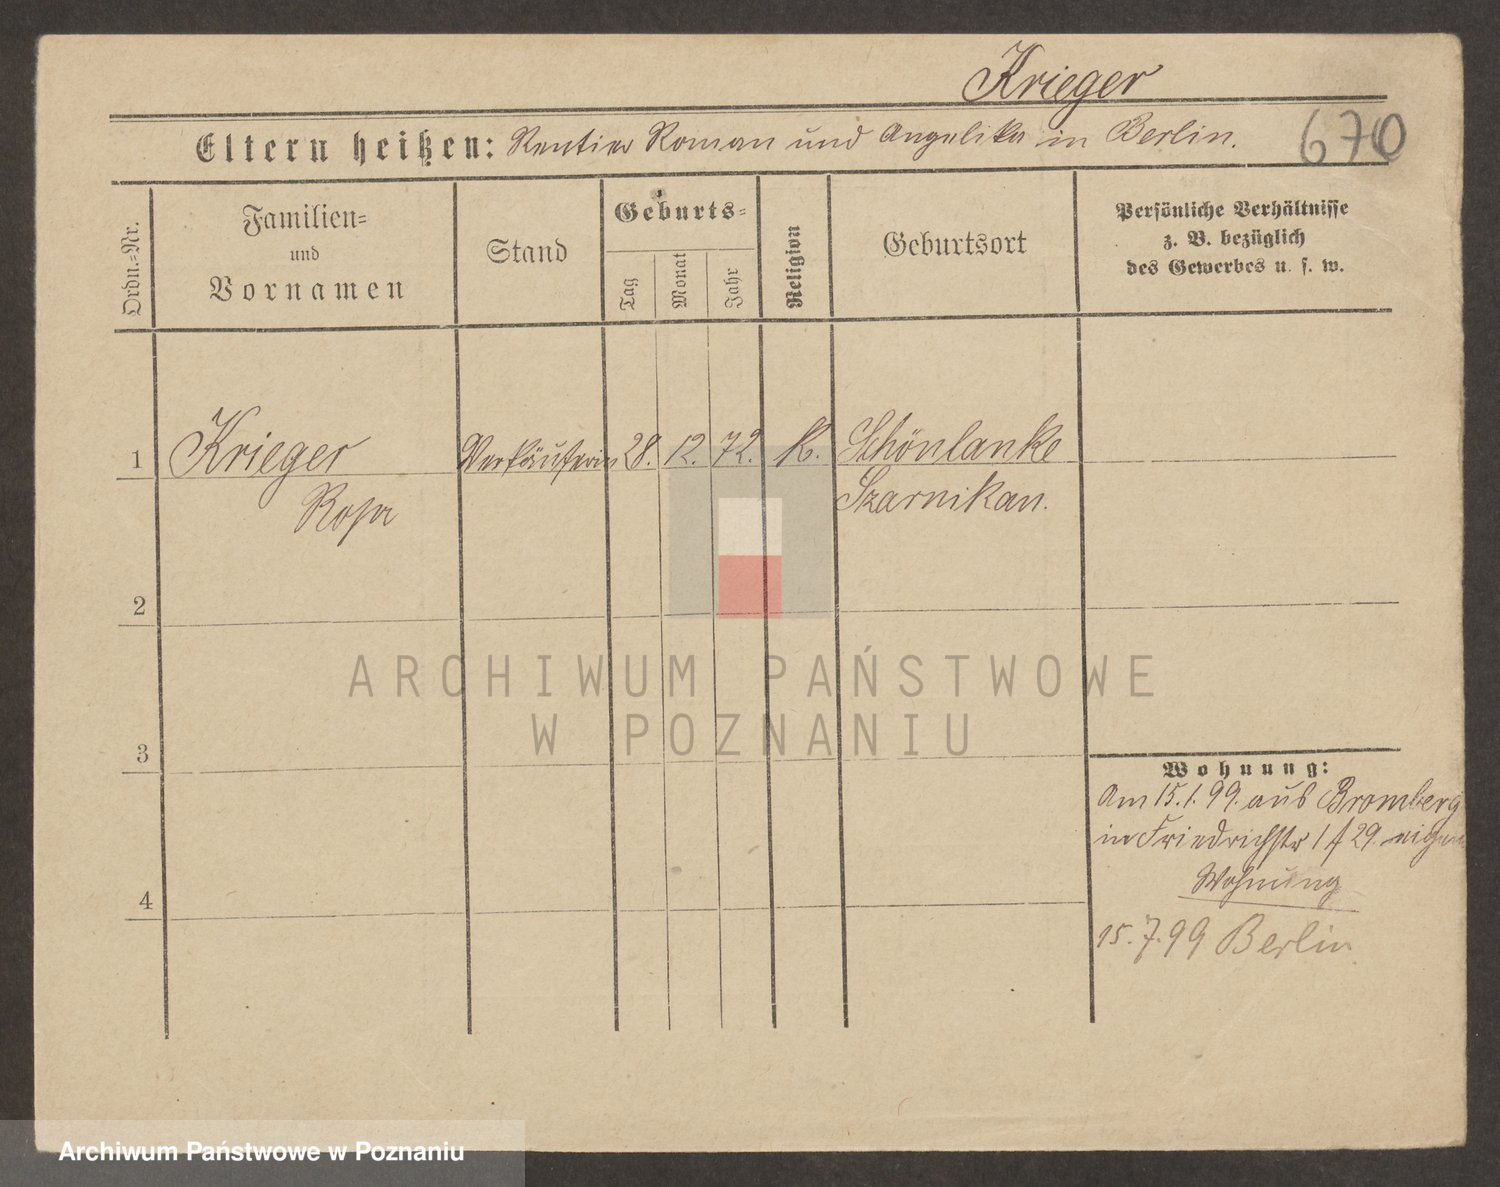 Krieger
Eltern heißen: Rentier Roman und Angelika in Berlin.
670
Ordn.-Nr.
Familien-
und
Vornamen
Stand
Geburts-
Tag
Monat
Jahr
Religion
Geburtsort
Persönliche Verhältnisse
z. B. bezüglich
des Gewerbes u. s. w.
1 Krieger Verkäuferin 28. 12. 72. K. Schönlanke
Rosa Szarnikau.
2
3
4
Wohnung:
Am 15.1.99. aus Bromberg
in Friedrichstr 29. eigen
Wohnung
15.7.99 Berlin
ARCHIWUM PAŃSTWOWE
W POZNANIU
Archiwum Państwowe w Poznaniu